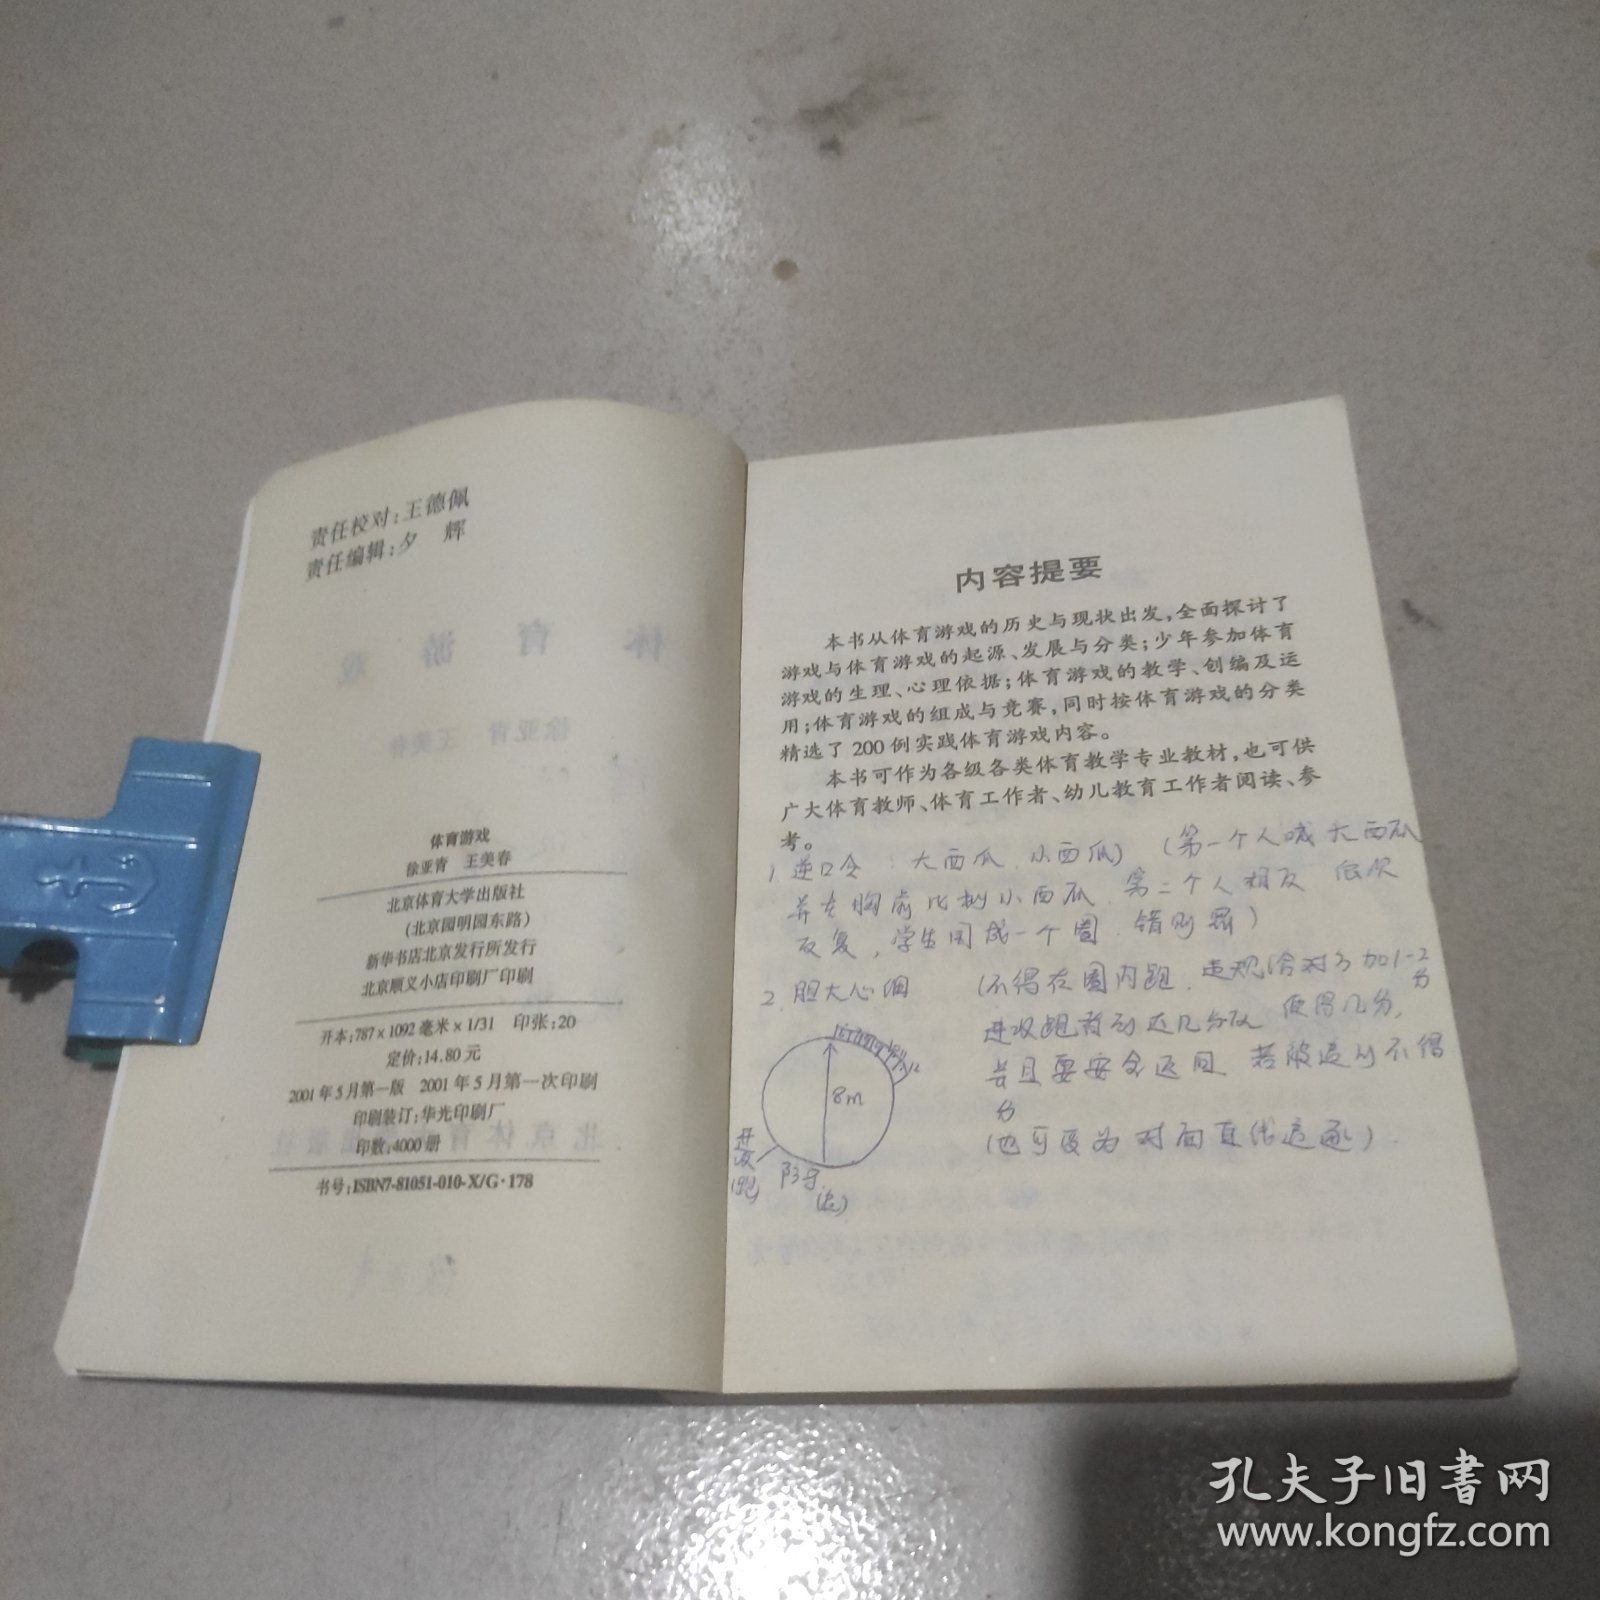 责任校对：王德佩
责任编辑：夕　辉
体育游戏
徐亚青　王美春
北京体育大学出版社
（北京圆明园东路）
新华书店北京发行所发行
北京顺义小店印刷厂印刷
开本：787×1092毫米×1/31　印张：20
定价：14.80元
2001年5月第一版　2001年5月第一次印刷
印刷装订：华光印刷厂
印数：4000册
书号：ISBN7-81051-010-X/G·178
内容提要
本书从体育游戏的历史与现状出发，全面探讨了
游戏与体育游戏的起源、发展与分类；少年参加体育
游戏的生理、心理依据；体育游戏的教学、创编及运
用；体育游戏的组成与竞赛，同时按体育游戏的分类
精选了200例实践体育游戏内容。
本书可作为各级各类体育教学专业教材，也可供
广大体育教师、体育工作者、幼儿教育工作者阅读、参
考。
1. 逆口令：大西瓜、小西瓜）（第一个人喊大西瓜
并在胸前比划小西瓜，第二个人相反 依次
反复，学生围成一个圈，错则罚）
2. 胆大心细 （不得在圈内跑，违规给对方加1-2
分
进攻跑 得几分，
并且要安全返回，若被追到不得
分
（也可改为对面直线追逐）
8m
进攻
（跑）
防守
（追）
孔夫子旧书网
www.kongfz.com